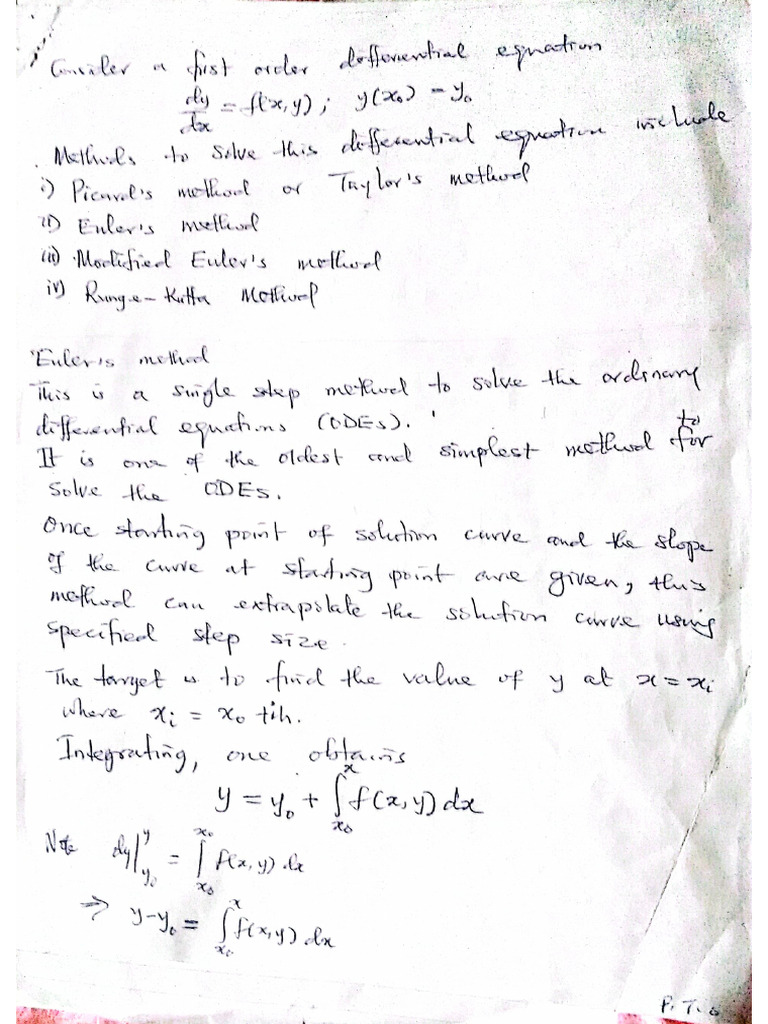 Consider a first order differential equation
dy/dx = f(x,y); y(x₀) = y₀
Methods to solve this differential equation include
i) Picard's method or Taylor's method
ii) Euler's method
iii) Modified Euler's method
iv) Runge-Kutta Method
Euler's method
This is a single step method to solve the ordinary
differential equations (ODEs).
It is one of the oldest and simplest method to for
solve the ODEs.
Once starting point of solution curve and the slope
of the curve at starting point are given, this
method can extrapolate the solution curve using
specified step size.
The target is to find the value of y at x = xᵢ
where xᵢ = x₀ + ih.
Integrating, one obtains
y = y₀ + ∫_{x₀}^{x} f(x,y) dx
Note dy|_{y₀}^{y} = ∫_{x₀}^{x₀} f(x,y) dx
⇒ y - y₀ = ∫_{x₀}^{x} f(x,y) dx
P.T.O